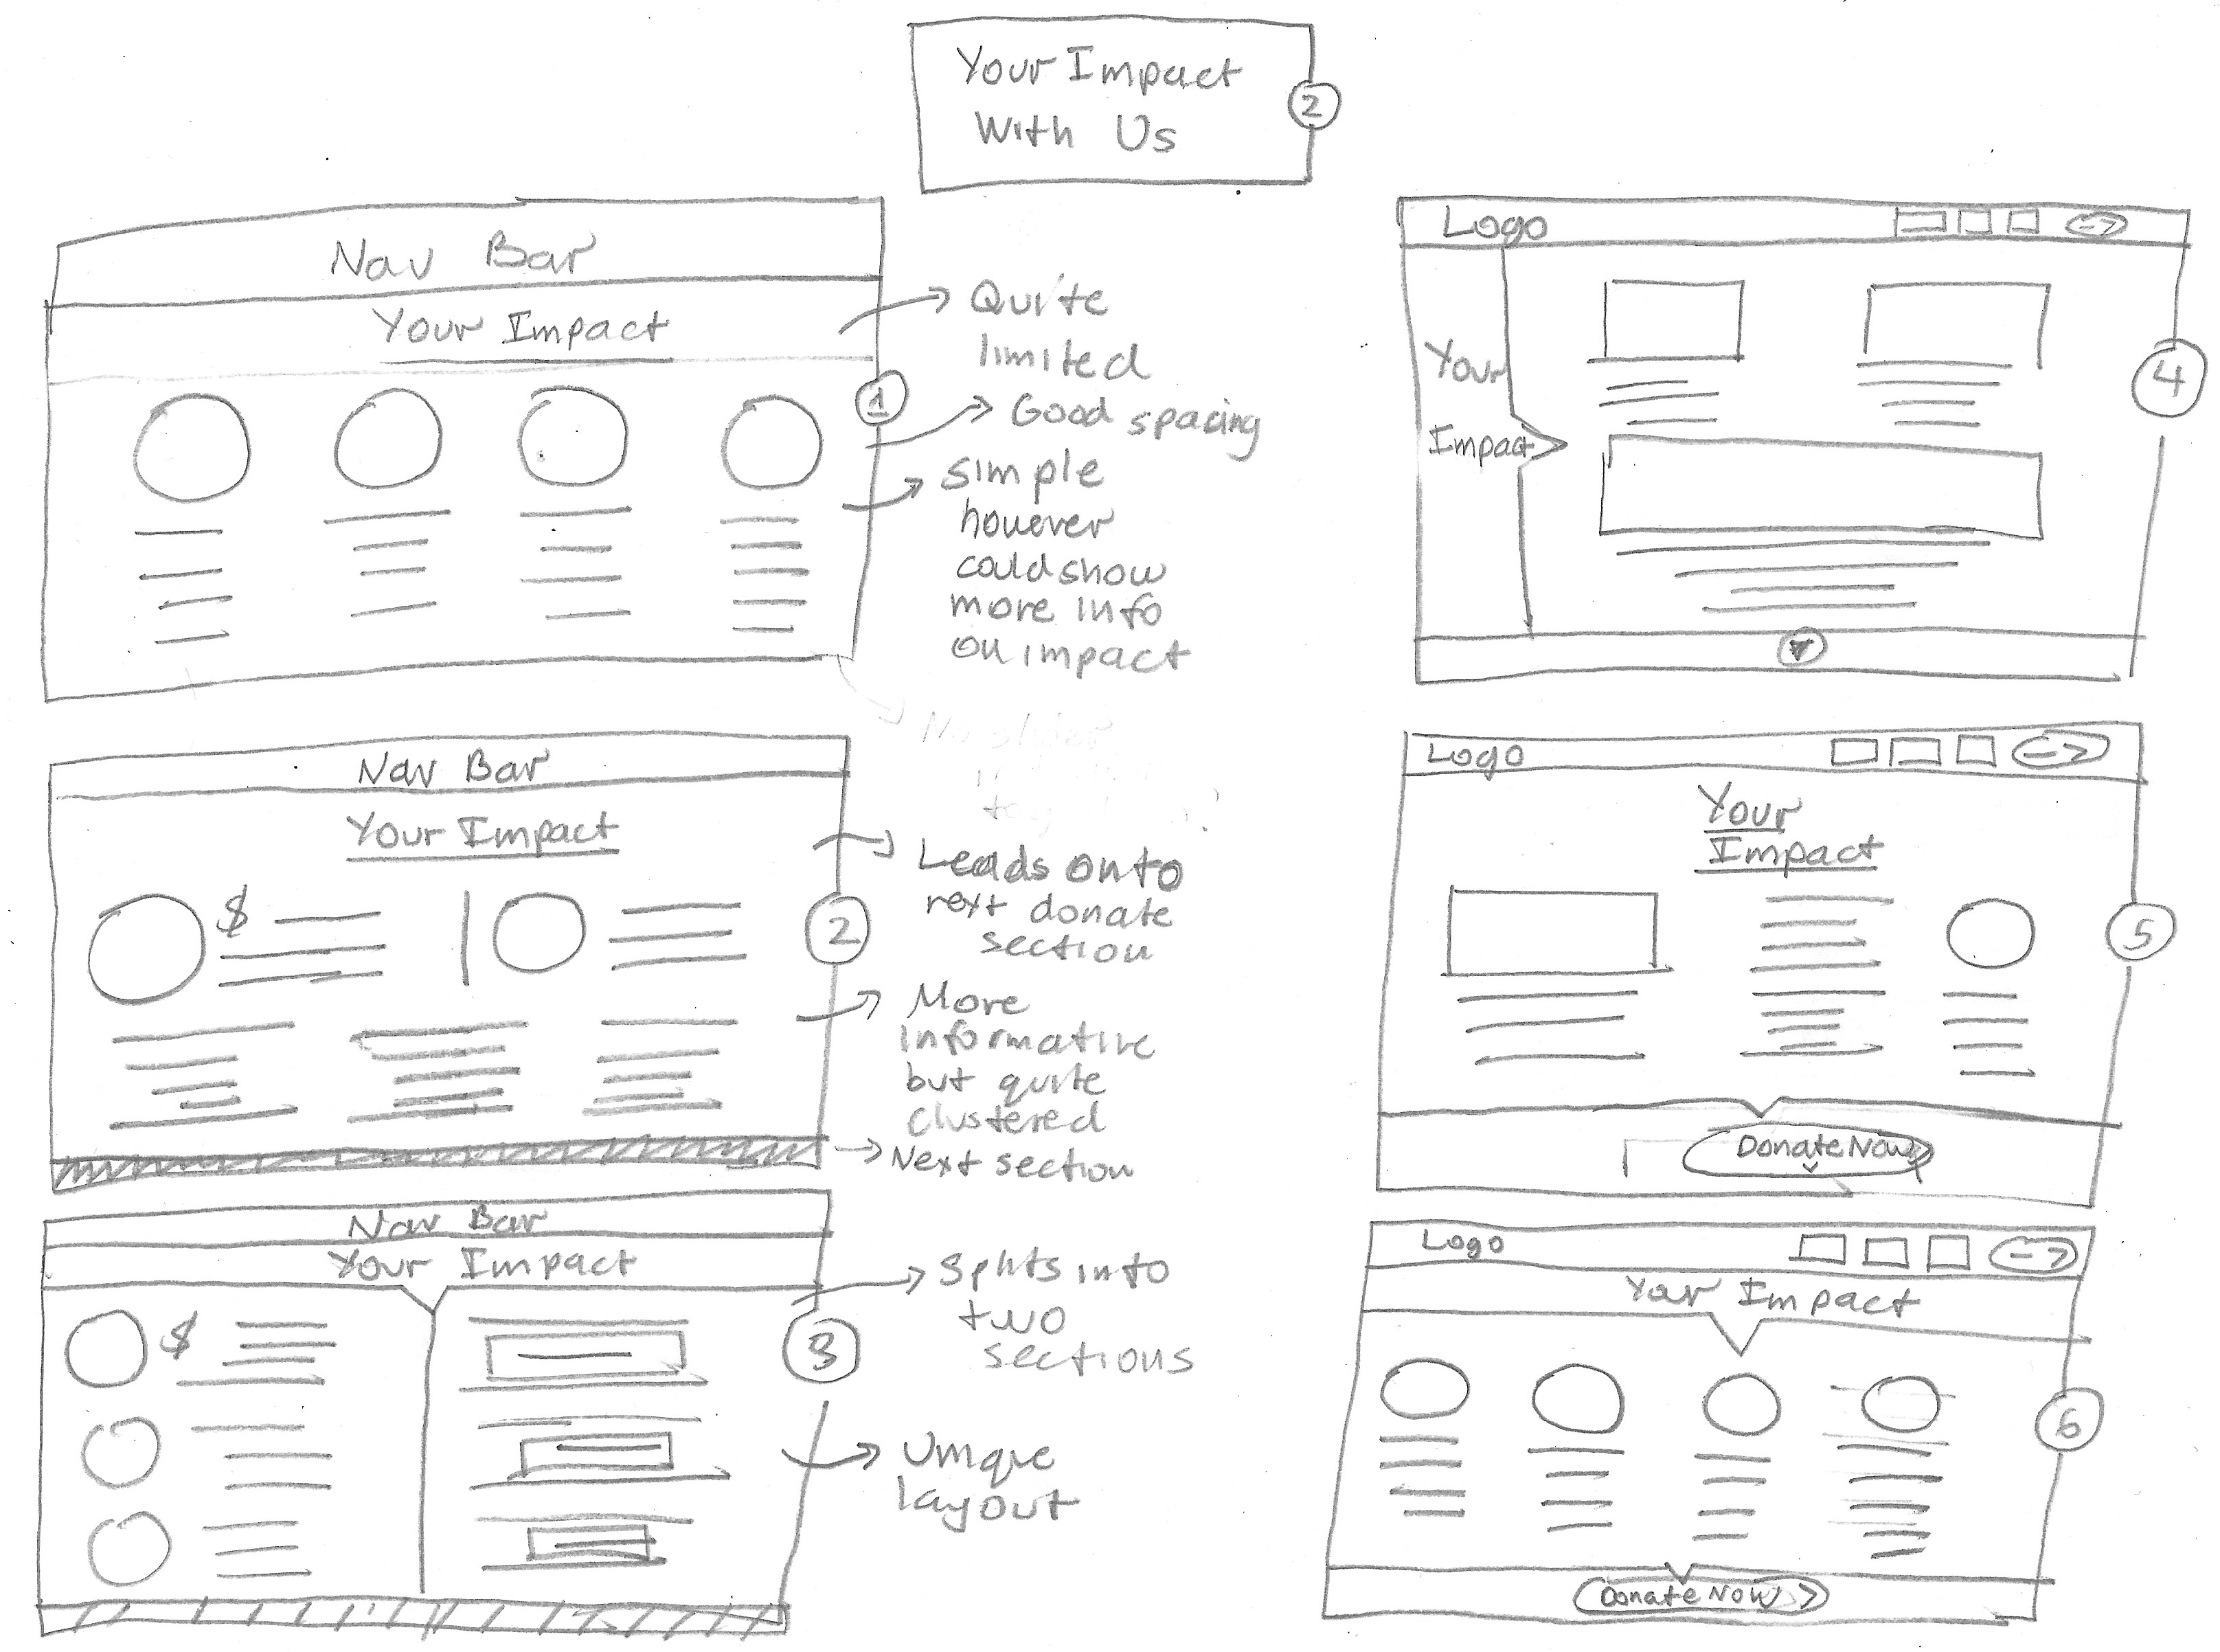 Your Impact
With Us
2
Nav Bar
Your Impact
1
Quite
limited
Good spacing
simple
however
could show
more info
on impact
Nav Bar
Your Impact
$
2
Leads onto
next donate
section
More
informative
but quite
clustered
Next section
Nav Bar
Your Impact
$
3
Splits into
two
sections
Unique
layout
Logo
Your
Impact
4
Logo
Your
Impact
5
Donate Now
Logo
Your Impact
6
Donate Now